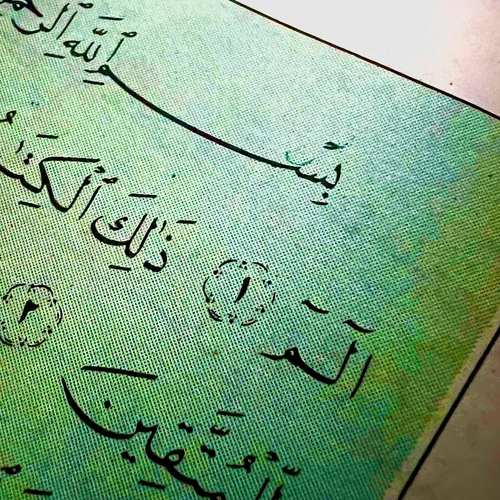 بِسْمِ ٱللَّهِ ٱلرَّحْمَ
الٓمٓ ١ ذَٰلِكَ ٱلْكِتَٰ
لِّلْمُتَّقِينَ ٢